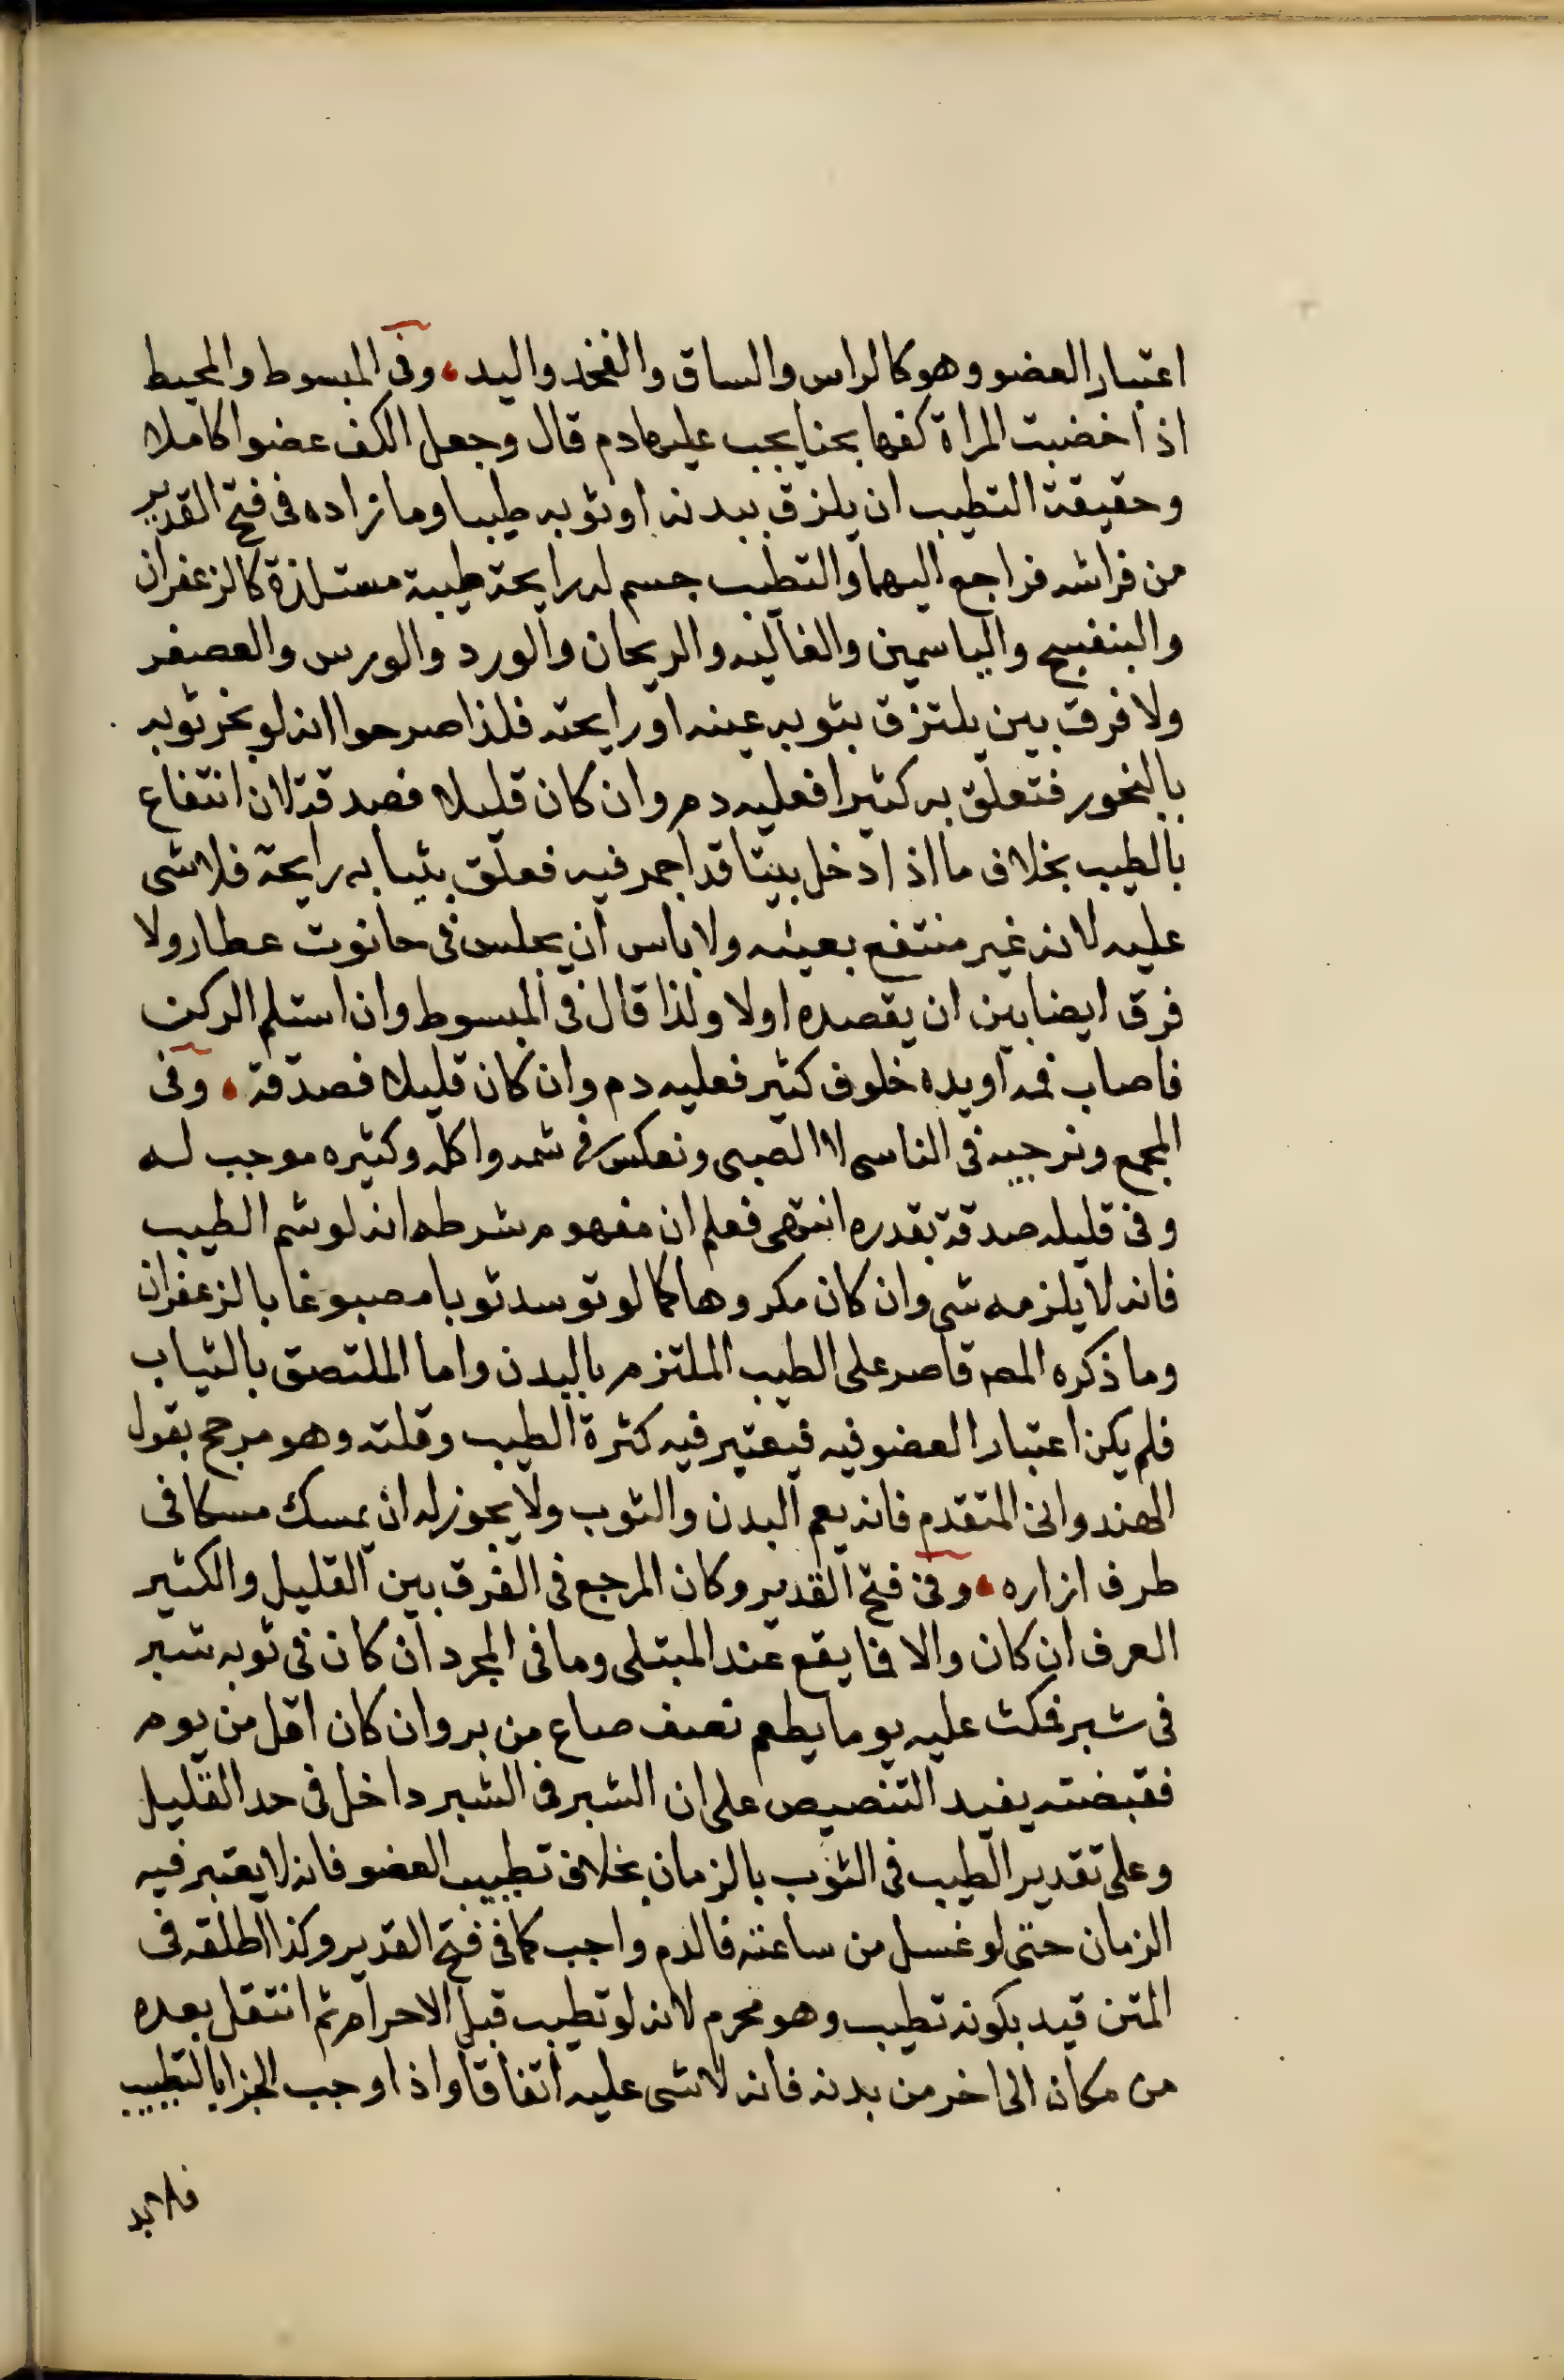 اعتبار العضو وهو كالراس والساق والفخذ واليد، وفى المبسوط والمحيط
اذا خضبت المراة كفها بحنا يجب عليها دم قال وجعل الكف عضوا كاملا
وحقيقة التطيب ان يلزق ببدنه او ثوبه طيبا وما زاده فى فتح القدير
من فراشه فراجع اليهما والتطيب جسم له رايحة طيبة مستلذة كالزعفران
والبنفسج والياسمين والغاليه والريحان والورد والورس والعصفر
ولا فرق بين يلتزق بثوبه عينه او رايحته فلذا صرحوا انه لو بخر ثوبه
بالبخور فتعلق به كثيرا فعليه دم وان كان قليلا فصدقة لان انتفاع
بالطيب بخلاف ما اذا دخل بيتا قد اجمر فيه فعلق بثيابه رايحة فلا شى
عليه لانه غير منتفع بعينه ولا باس ان يجلس فى حانوت عطار ولا
فرق ايضا بين ان يقصده اولا ولذا قال فى المبسوط وان استلم الركن
فاصاب فمه او يده خلوف كثير فعليه دم وان كان قليلا فصدقة، وفى
المجمع ونوجبه فى الناسى لا الصبى ونعكس فى شمه واكله وكثيره موجب له
وفى قليله صدقة بقدره انتهى فعلم ان مفهوم شرطه انه لو شم الطيب
فانه لا يلزمه شى وان كان مكروها كما لو توسد ثوبا مصبوغا بالزعفران
وما ذكره المصـ قاصر على الطيب الملتزم بالبدن واما الملتصق بالثياب
فلم يكن اعتبار العضو فيه فيعتبر فيه كثرة الطيب وقلته وهو مرجح بقول
الهندوانى المتقدم فانه يعم البدن والثوب ولا يجوز له ان يمسك مسكا فى
طرف ازاره، وفى فتح القدير وكان المرجع فى الفرق بين القليل والكثير
العرف ان كان والا فما يقع عند المبتلى وما فى المجرد ان كان فى ثوبه شبر
فى شبر فمكث عليه يوما يطعم نصف صاع من بر وان كان اقل من يوم
فقبضته يفيد التنصيص على ان الشبر فى الشبر داخل فى حد القليل
وعلى تقدير الطيب فى الثوب بالزمان بخلاف تطييب العضو فانه لا يعتبر فيه
الزمان حتى لو غسل من ساعته فالدم واجب كما فى فتح القدير وكذا اطلقه فى
المتن قيد بكونه تطيب وهو محرم لانه لو تطيب قبل الاحرام ثم انتقل بعده
من مكان الى اخر من بدنه فانه لا شى عليه اتفاقا واذا وجب الجزا بالتطييب
فلا بد